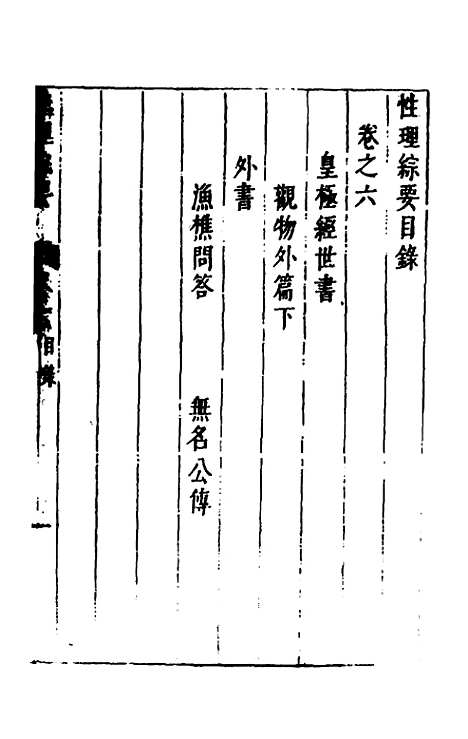 性理綜要目錄
卷之六
皇極經世書
觀物外篇下
外書
漁樵問答　無名公傳
目錄